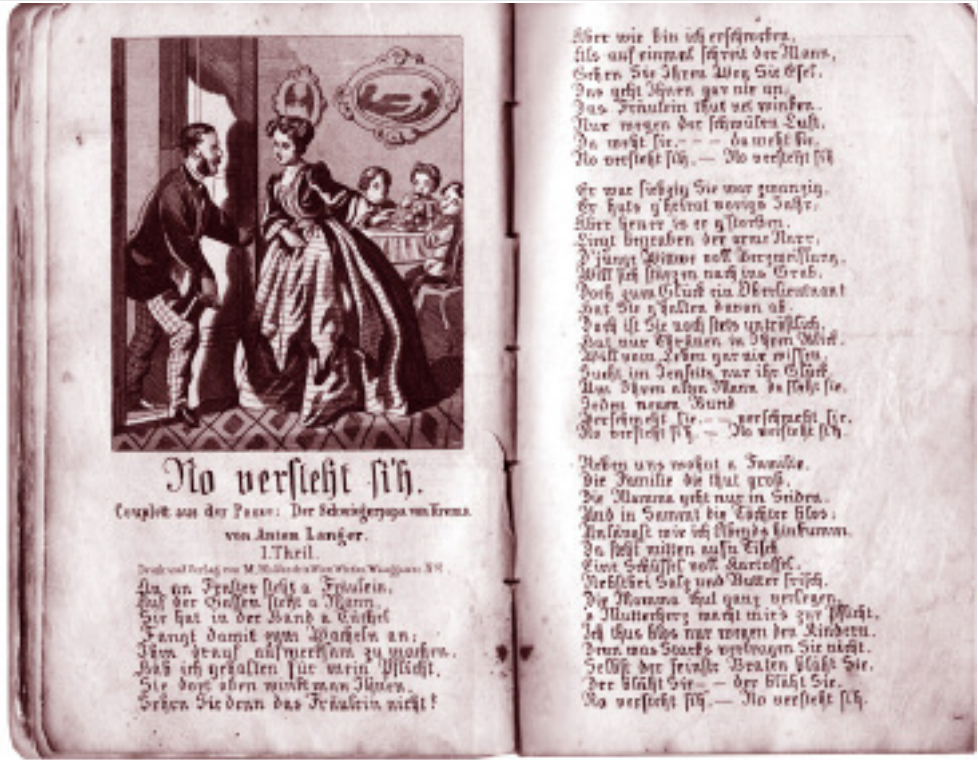 No versteht si'h.
Couplet aus der Posse: Der Schwiegerpapa von Krems.
von Anton Langer.
I. Theil.
Druck und Verlag von M. Moßbeck in Wien Wieden Waaggasse
An an Fenster steht a Fräulein,
Auf der Gassen steht a Mann,
Sie hat in der Hand a Tüchel
Fangt damit zum Wacheln an;
Ihm drauf aufmerksam zu machen,
Hab ich gehalten für mein Pflicht,
Sie dort oben winkt man Ihnen,
Sehen Sie denn das Fräulein nicht!
Aber wie bin ich erschrocken,
Als auf einmal schreit der Mann,
Gehen Sie Ihren Weg Sie Esel,
Das geht Ihnen gar nie an,
Das Fräulein thut net winken,
Nur wegen der schwülen Luft,
Da weht sie. - - - da weht sie.
No versteht si'h. — No versteht si'h
Er war siebzig Sie war zwanzig,
Er hats g'heirat voriges Jahr,
Aber heuer is er g'storben,
Liegt begraben der arme Narr,
D'junge Wittwe voll Verzweiflung,
Will sich stürzen nach ins Grab,
Doch zum Glück ein Oberlieutnant
Hat Sie g'halten davon ab.
Doch ist Sie noch stets untröstlich,
Hat nur Thränen in Ihrem Blick,
Will vom Leben gar nix wissen,
Sucht im Jenseits nur ihr Glück,
Um Ihren alten Mann da steht sie,
Jeden neuen Bund
Verschmeht sie. - - verschmeht sie.
No versteht si'h. — No versteht si'h.
Neben uns wohnt a Familie,
Die Familie die thut groß,
Die Mamma geht nur in Seiden,
Und in Sammt die Töchter blos;
Unlängst wie ich Abends hinkumm,
Da steht mitten aufn Tisch
Eine Schüssel voll Kartoffel,
Nebstbei Salz und Butter frisch.
Die Mamma thut ganz verlegen,
a Mutterherz macht mir's zur Pflicht,
Ich thus blos nur wegen den Kindern,
Denn was Starks vertragen Sie nicht.
Selbst der feinste Braten bläht Sie,
Der bläht Sie - - der bläht Sie.
No versteht si'h. — No versteht si'h.